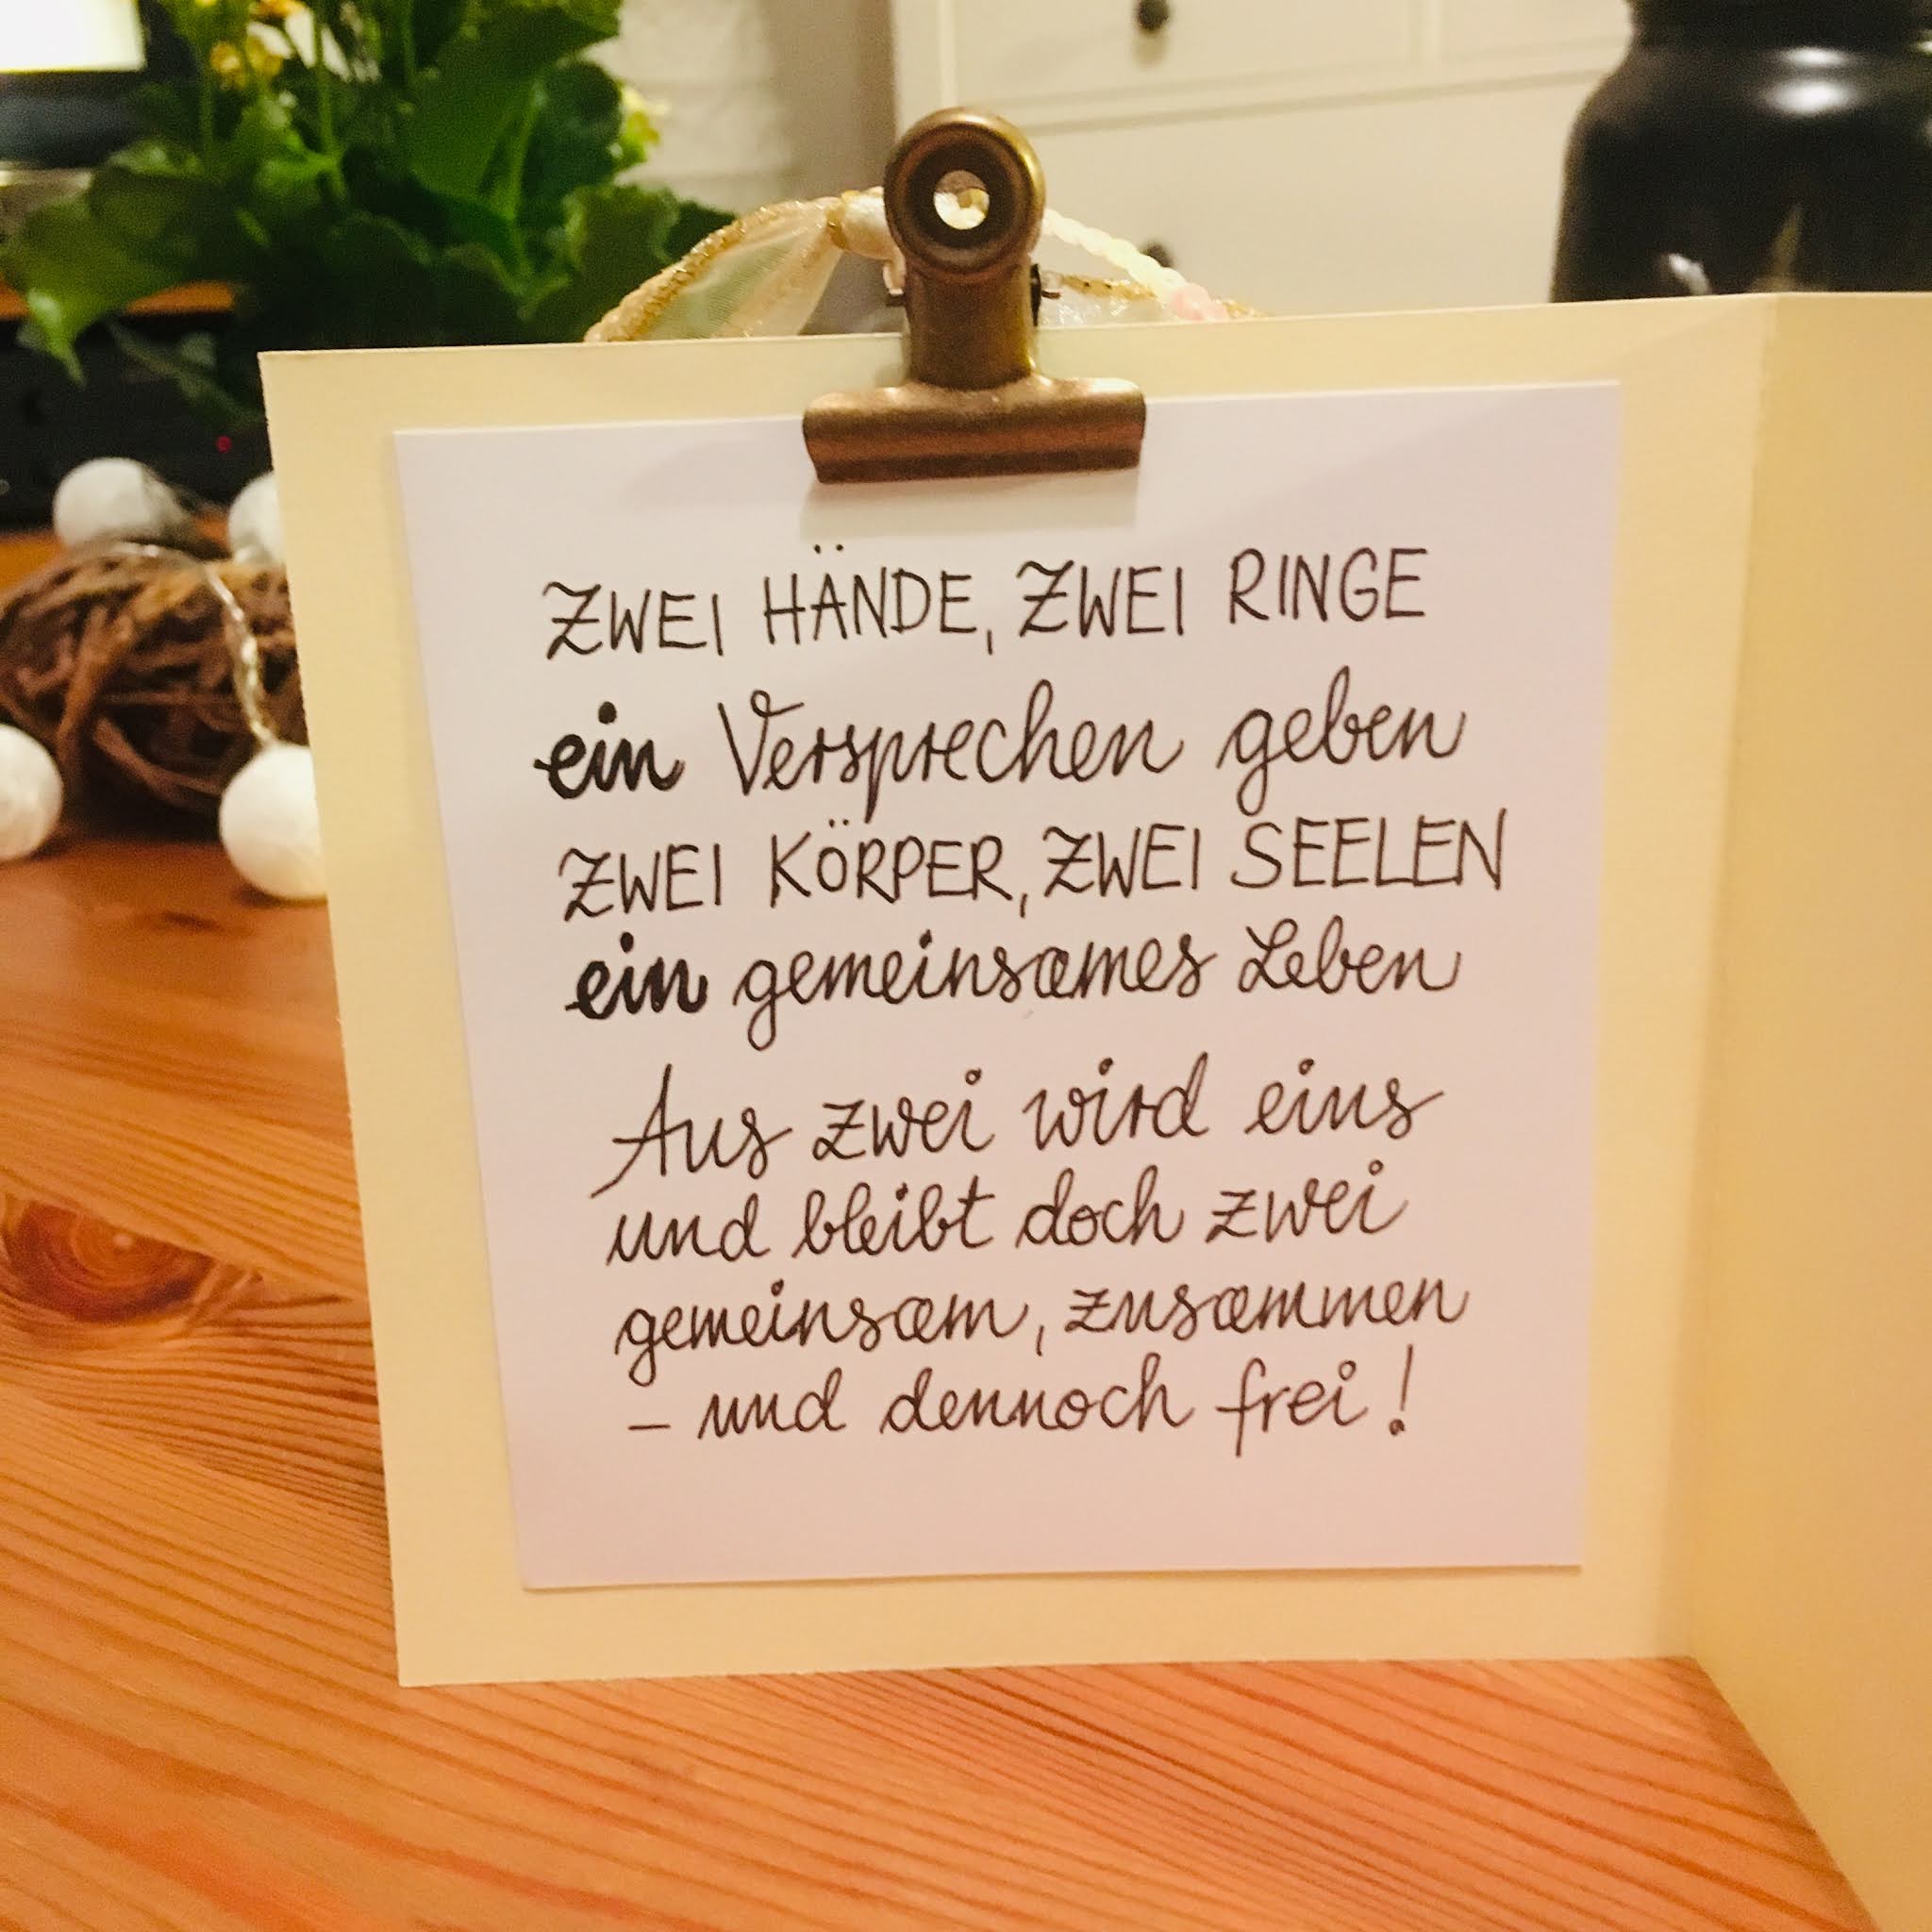 ZWEI HÄNDE, ZWEI RINGE
ein Versprechen geben
ZWEI KÖRPER, ZWEI SEELEN
ein gemeinsames Leben
Aus zwei wird eins
und bleibt doch zwei
gemeinsam, zusammen
– und dennoch frei!